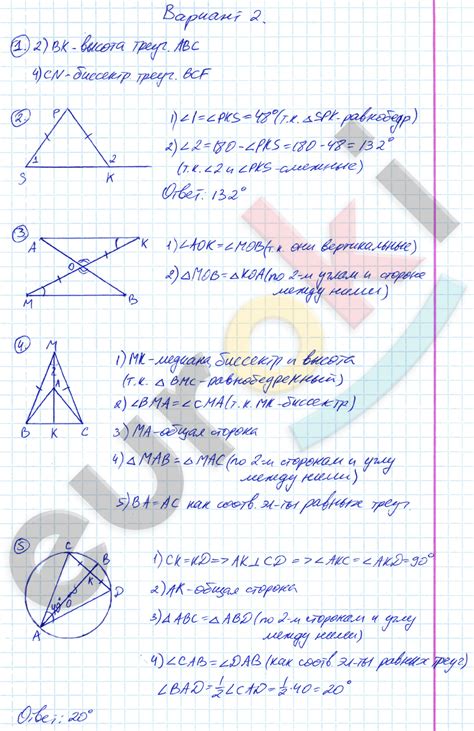 Вариант 2.
1. 2) BK - высота треуг. ABC
4) CN - биссектр треуг. BCF
2. P
1 2
S K
1) ∠1 = ∠PKS = 48° (т.к. △SPK - равнобедр)
2) ∠2 = 180 - ∠PKS = 180 - 48 = 132°
(т.к. ∠2 и ∠PKS - смежные)
Ответ: 132°
3. A K
O
M B
1) ∠AOK = ∠MOB (т.к. они вертикальные)
2) △MOB = △KOA (по 2-м углам и стороне
между ними)
4. M
A
B K C
1) MK - медиана, биссектр и высота
(т.к. △BMC - равнобедренный)
2) ∠BMA = ∠CMA (т.к. MK - биссектр)
3) MA - общая сторона
4) △MAB = △MAC (по 2-м сторонам и углу
между ними)
5) BA = AC как соотв. эл-ты равных треуг.
5. C B
K
D
40° O
A
1) CK = KD => AK ⊥ CD => ∠AKC = ∠AKD = 90°
2) AK - общая сторона
3) △ABC = △ABD (по 2-м сторонам и углу
между ними)
4) ∠CAB = ∠DAB (как соотв эл-ты равных треуг)
∠BAD = 1/2 ∠CAD = 1/2 · 40 = 20°
Ответ: 20°
euroki